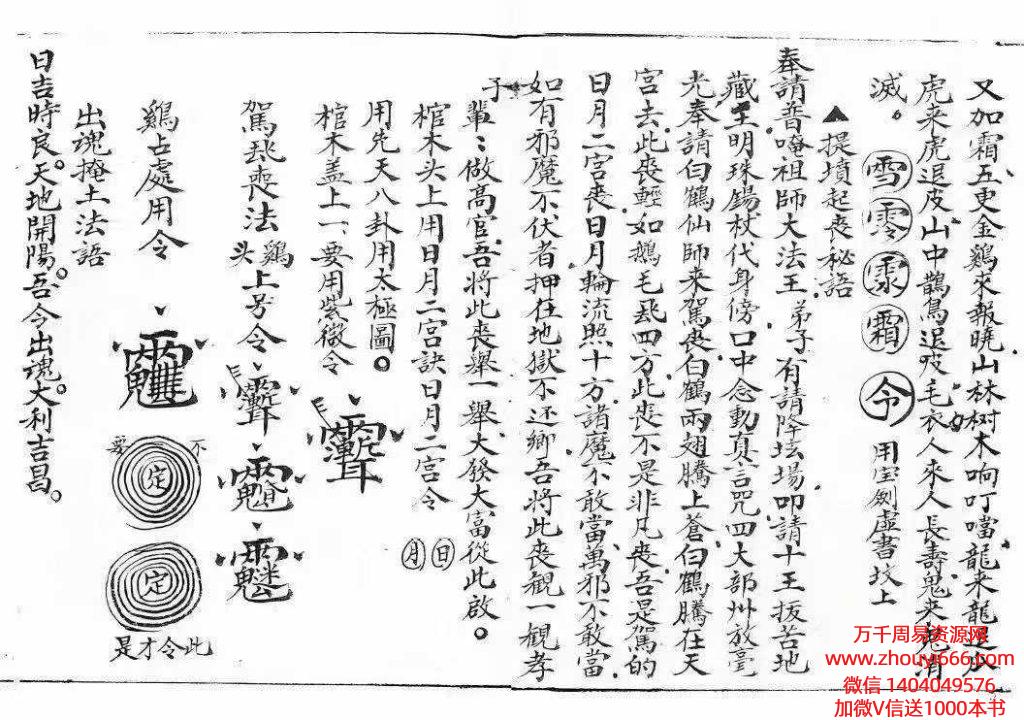 又加霜五更金鷄來報曉山林树木响叮噹龍来龍退
虎来虎退皮山中鵲鳥退皮毛衣人來人長壽鬼来鬼消
滅。雪零霜令用宝劍虚書坟上
▲提墳起喪秘語
奉請普唵祖師大法王弟子有請降坛場叩請十王拔苦地
藏王明珠錫杖代身傍口中念動真言咒四大部州放毫
光奉請白鶴仙師来駕喪白鶴兩翅騰上蒼白鶴騰在天
宮去此喪輕如鵝毛飛四方此喪不是非凡喪吾是駕的
日月二宮喪日月輪流照十方諸魔不敢當萬邪不敢當
如有邪魔不伏者押在地獄不还鄉吾将此喪观一觀孝
子
輩:做高官吾將此喪舉一舉大發大富從此啟。
棺木头上用日月二宮訣日月二宮令 日 月
用先天八卦用太極圖。
棺木盖上一、要用紫微令
駕喪法鷄头上号令
鷄占處用令
要不
定
定
此令才是
出魂掩土法語
日吉時良。天地開陽。吾今出魂。大利吉昌。
万千周易资源网
www.zhouyi666.com
微信 1404049576
加微V信送1000本书